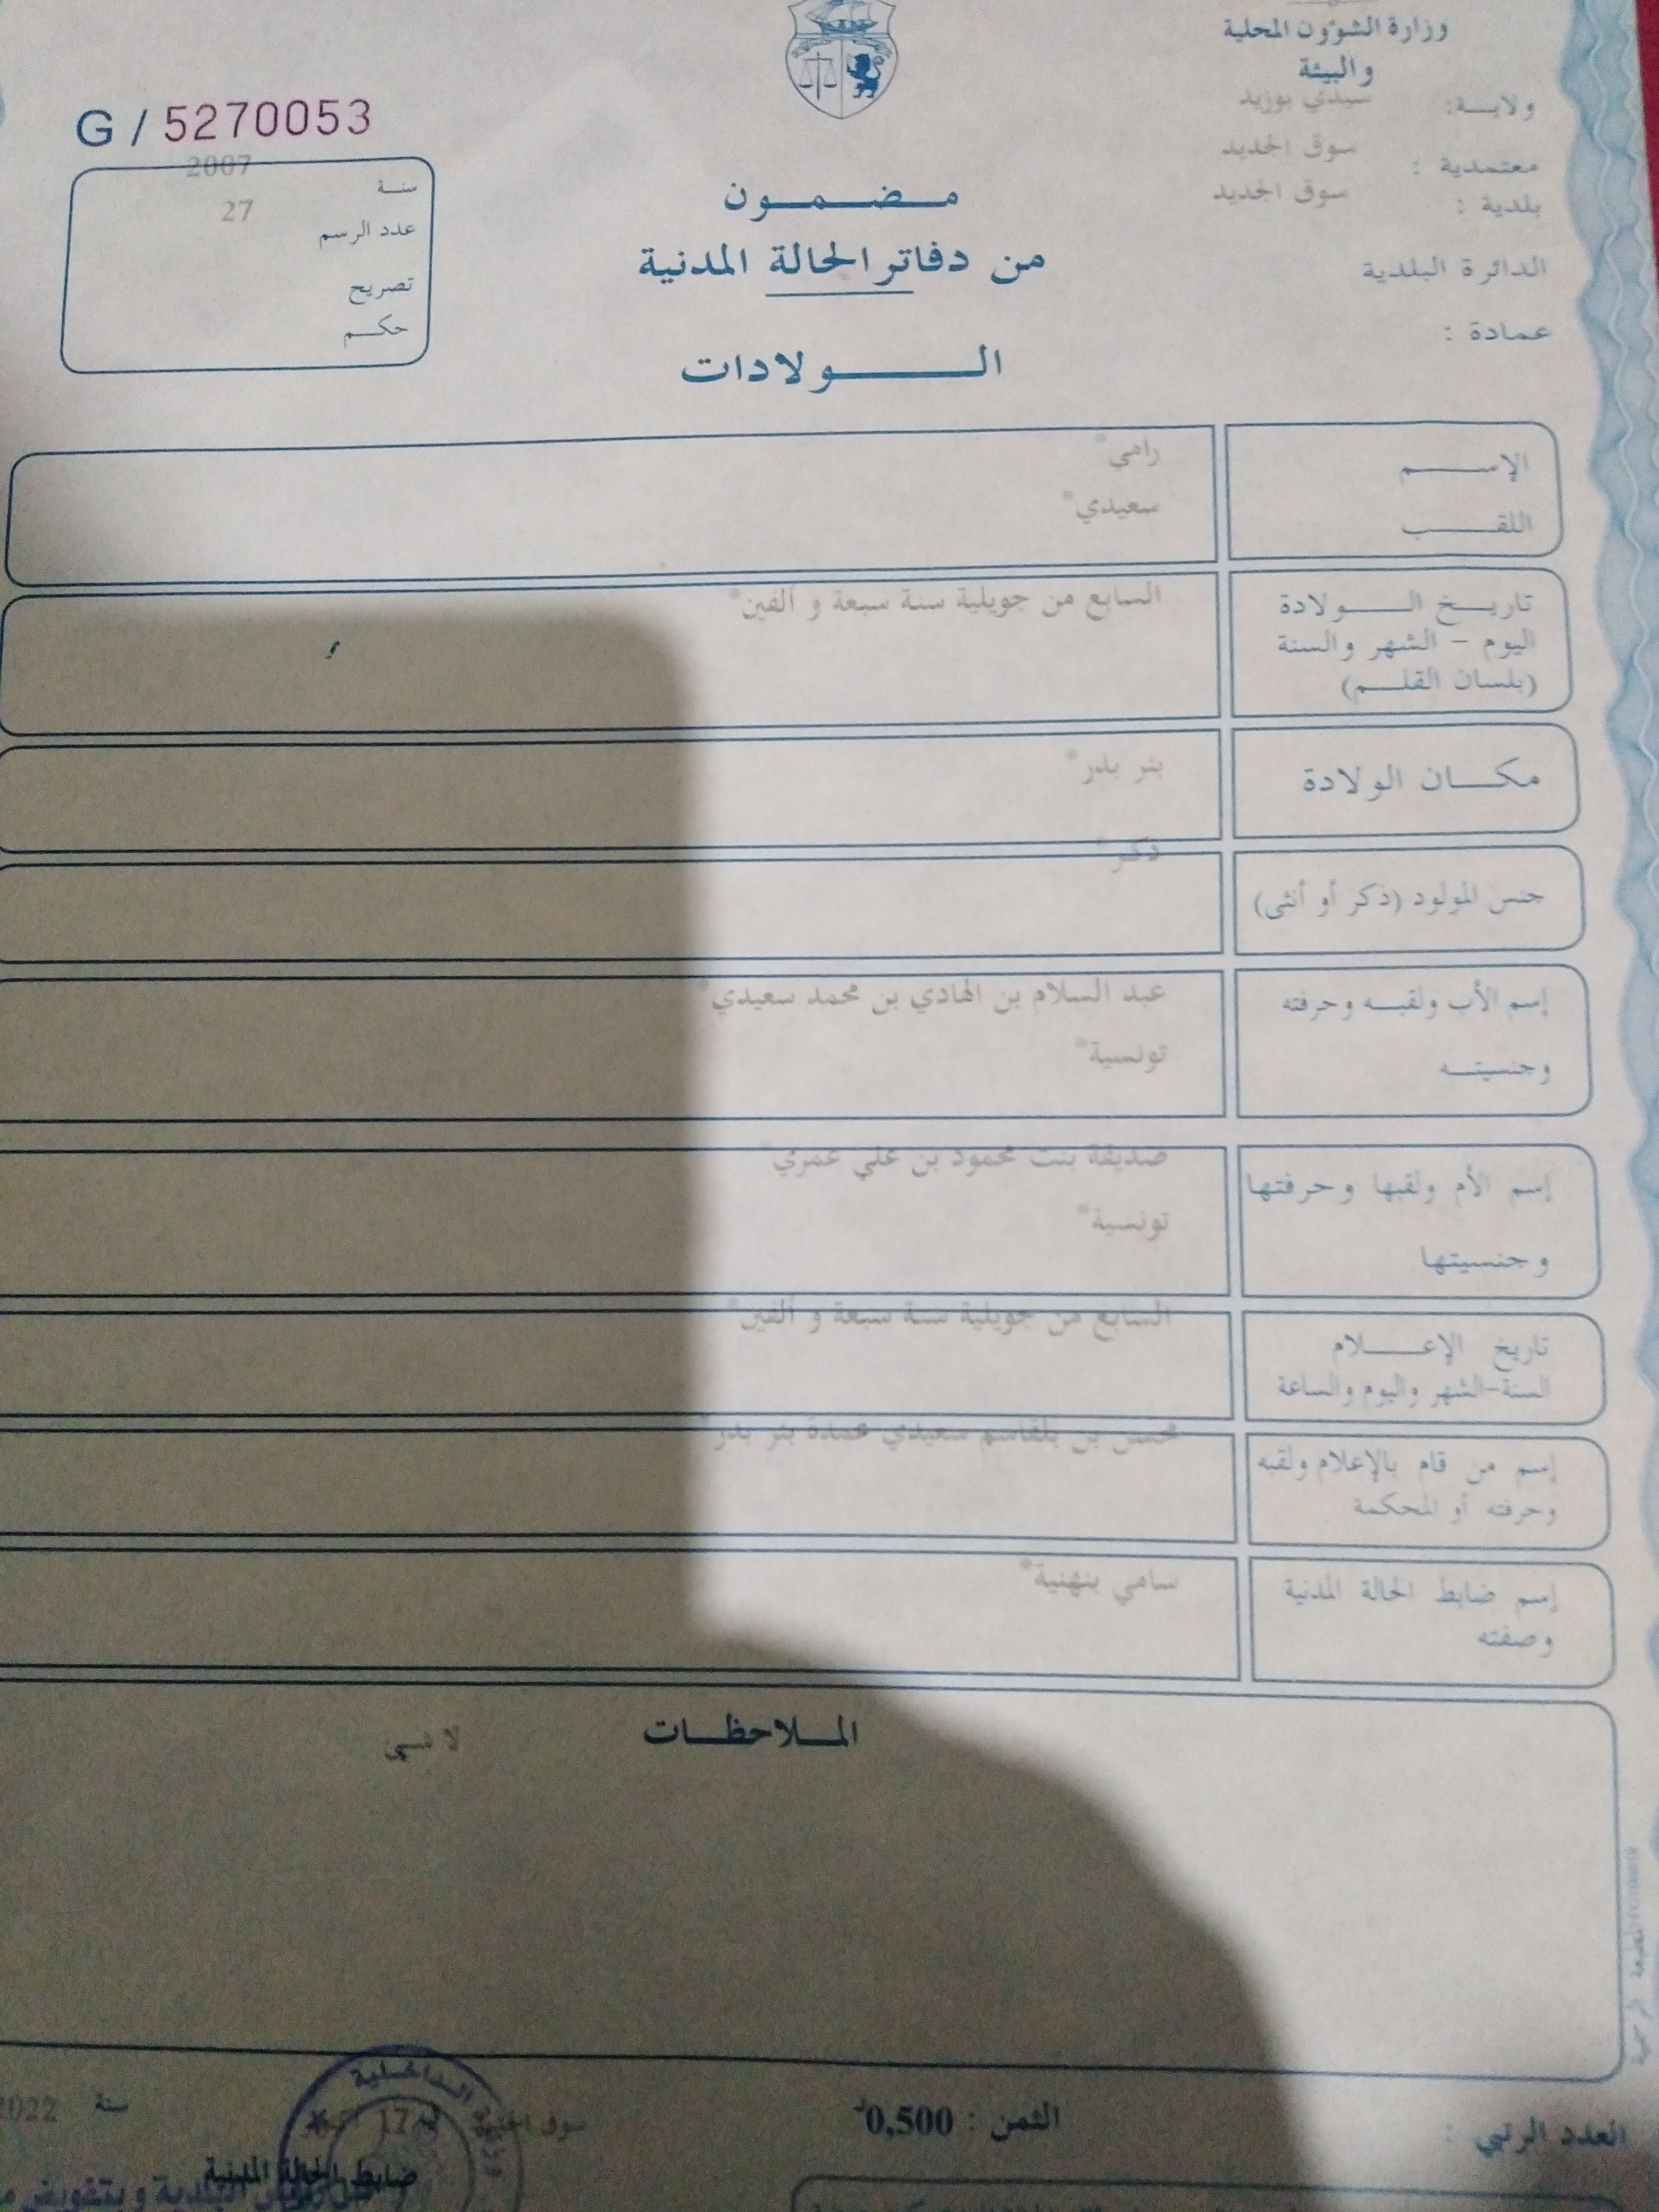 وزارة الشؤون المحلية
والبيئة
ولاية: سيدي بوزيد
معتمدية : سوق الجديد
بلدية : سوق الجديد
الدائرة البلدية
عمادة :
G / 5270053
سنة 2007
عدد الرسم 27
تصريح
حكم
مضمون
من دفاتر الحالة المدنية
الولادات
الإسم رامي*
اللقب سعيدي*
تاريخ الولادة السابع من جويلية سنة سبعة و ألفين*
اليوم - الشهر والسنة
(بلسان القلم)
مكان الولادة بئر بدر*
جنس المولود (ذكر أو أنثى) ذكر*
إسم الأب ولقبه وحرفته عبد السلام بن الهادي بن محمد سعيدي*
وجنسيته تونسية*
إسم الأم ولقبها وحرفتها صديقة بنت محمود بن علي عمري*
وجنسيتها تونسية*
تاريخ الإعلام السابع من جويلية سنة سبعة و ألفين*
السنة-الشهر واليوم والساعة
إسم من قام بالإعلام ولقبه محسن بن بلقاسم سعيدي عمدة بئر بدر*
وحرفته أو المحكمة
إسم ضابط الحالة المدنية سامي بنهنية*
وصفته
الملاحظات
لا شيء
العدد الرتبي :
الثمن : 0,500د
سوق 17 سنة 2022
ضابط الحالة المدنية
الداخلية